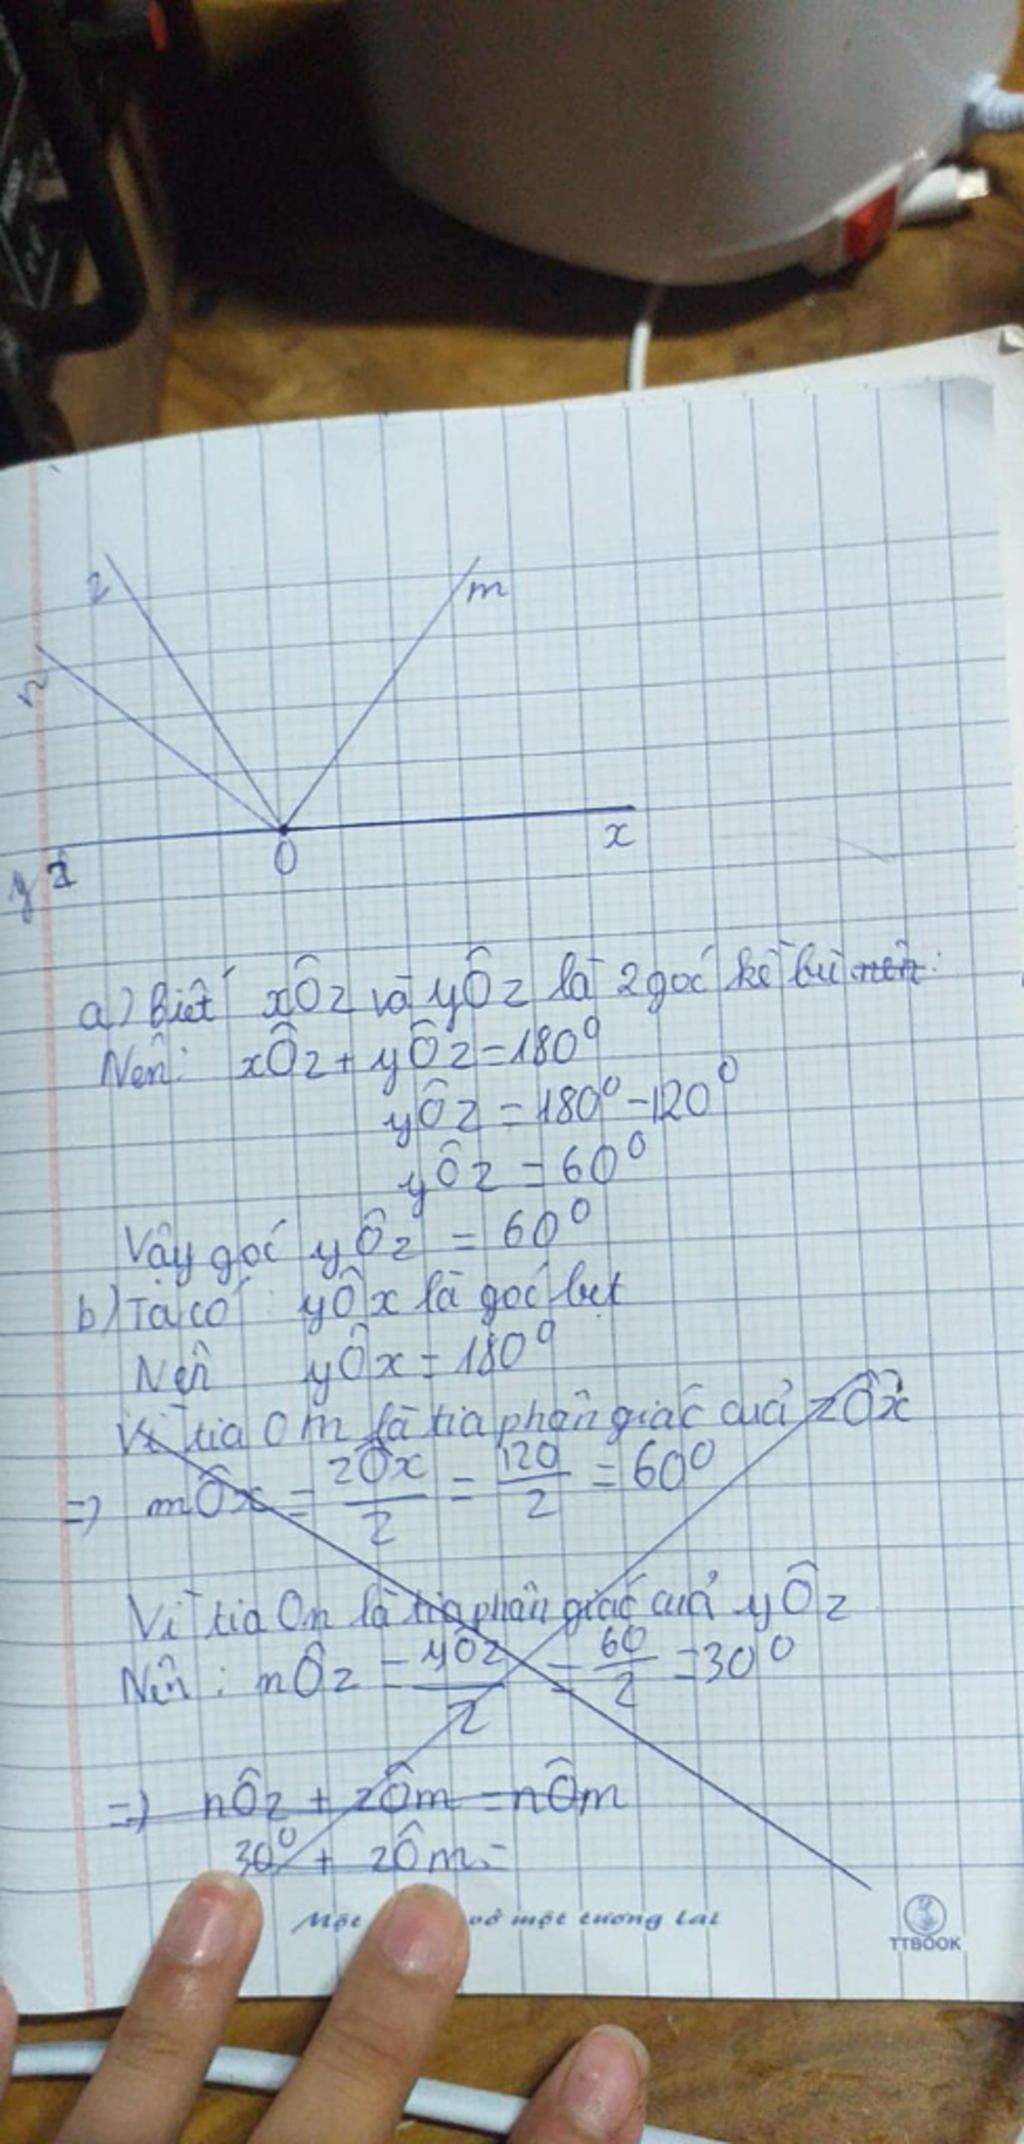 z
m
n
y
O
x
a) Biết xÔz và yÔz là 2 góc kề bù nên:
Nên: xÔz + yÔz = 180⁰
yÔz = 180⁰ - 120⁰
yÔz = 60⁰
Vậy góc yÔz = 60⁰
b) Ta có: yÔx là góc bẹt
Nên yÔx = 180⁰
Vì tia Om là tia phân giác của zÔx
=> mÔx = zÔx/2 = 120/2 = 60⁰
Vì tia On là tia phân giác của yÔz
Nên: nÔz = yÔz/2 = 60/2 = 30⁰
=> nÔz + zÔm = nÔm
30⁰ + zÔm =
Một vở một tương lai
TTBOOK